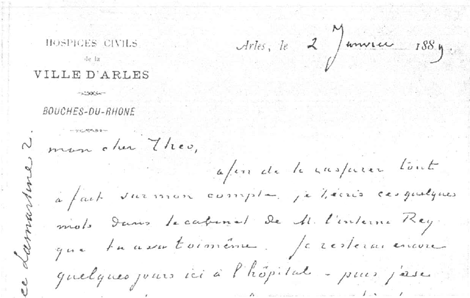 HOSPICES CIVILS
de la
VILLE D'ARLES
BOUCHES-DU-RHONE
Arles, le 2 Janvier 1889
mon cher Theo,
afin de te rassurer tout
à fait sur mon compte je t'écris ces quelques
mots dans le cabinet de M. l'interne Rey
que tu as vu toi même. Je resterai encore
quelques jours ici à l'hôpital - puis j'ose
ce Lamartine 2.